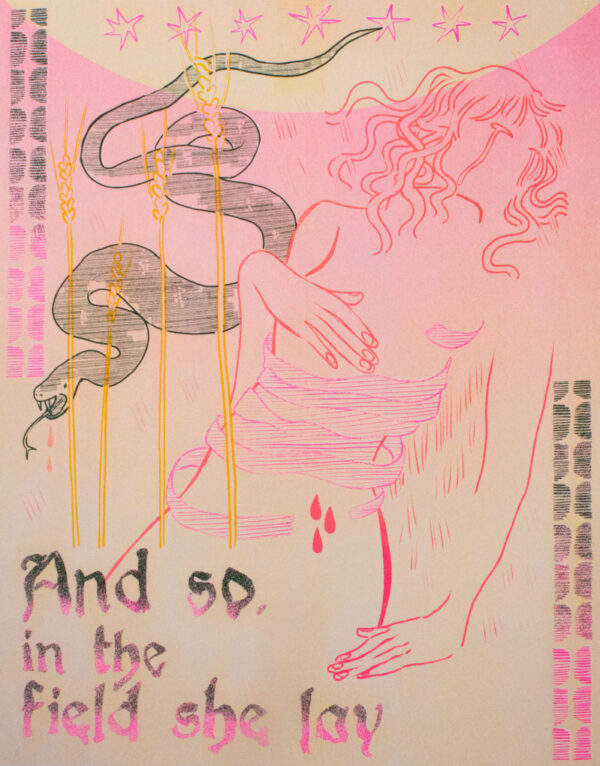 And so,
in the
field she lay